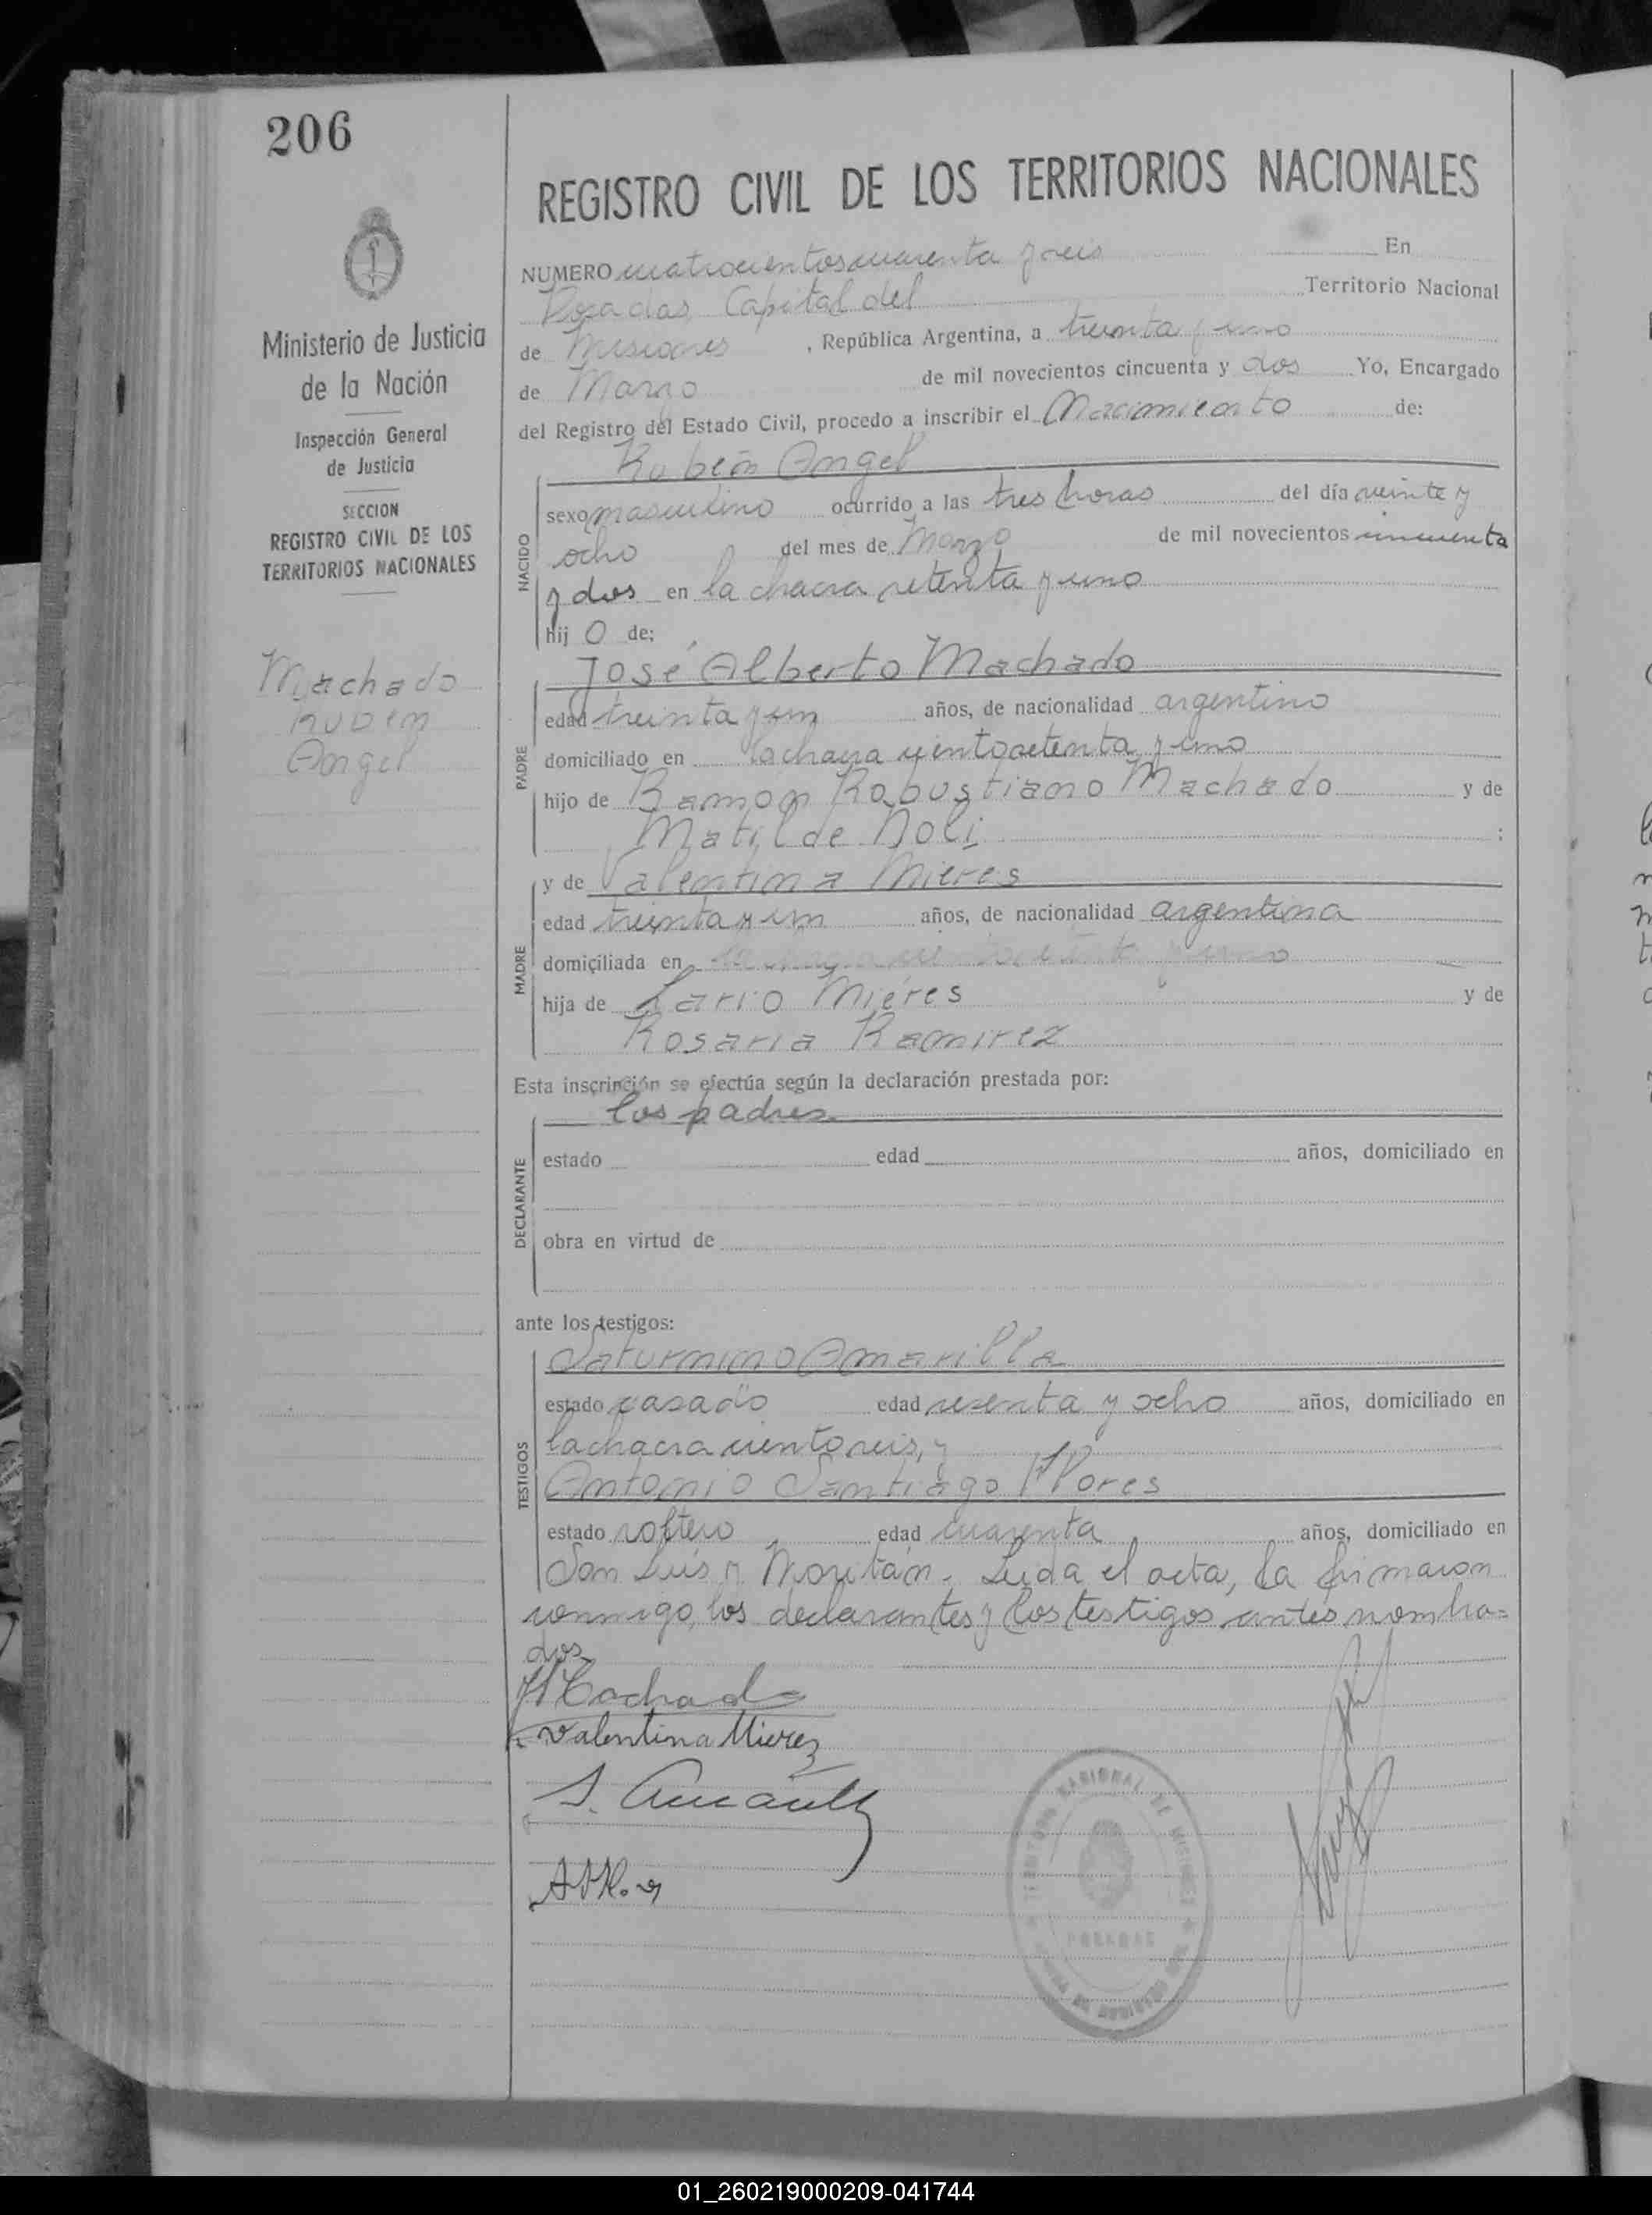 206
REGISTRO CIVIL DE LOS TERRITORIOS NACIONALES
Ministerio de Justicia
de la Nación
Inspección General
de Justicia
SECCION
REGISTRO CIVIL DE LOS
TERRITORIOS NACIONALES
Machado
Rubén
Angel
NUMERO cuatrocientos cuarenta y seis En
Posadas, Capital del Territorio Nacional
de Misiones, República Argentina, a treinta y uno
de Marzo de mil novecientos cincuenta y dos Yo, Encargado
del Registro del Estado Civil, procedo a inscribir el Nacimiento de:
Rubén Angel
NACIDO
sexo masculino ocurrido a las tres horas del día veinte y
ocho del mes de Marzo de mil novecientos cincuenta
y dos en la chacra setenta y uno
hijo de:
José Alberto Machado
PADRE
edad treinta y un años, de nacionalidad argentino
domiciliado en la chacra ciento setenta y uno
hijo de Ramon Robustiano Machado y de
Matilde Doli :
y de Valentina Mieres
MADRE
edad treinta y un años, de nacionalidad argentina
domiciliada en la chacra ciento setenta y uno
hija de Lario Mieres y de
Rosaria Ramirez
Esta inscripción se efectúa según la declaración prestada por:
los padres
DECLARANTE
estado edad años, domiciliado en
obra en virtud de
ante los testigos:
Saturnino Amarilla
TESTIGOS
estado casado edad sesenta y ocho años, domiciliado en
la chacra ciento seis, y
Antonio Santiago Flores
estado soltero edad cuarenta años, domiciliado en
San Luis y Moritán. Leida el acta, la firmaron
conmigo, los declarantes y los testigos antes nombra=
dos
Machado
Valentina Mierez
TERRITORIO NACIONAL DE MISIONES
POSADAS
01_260219000209-041744